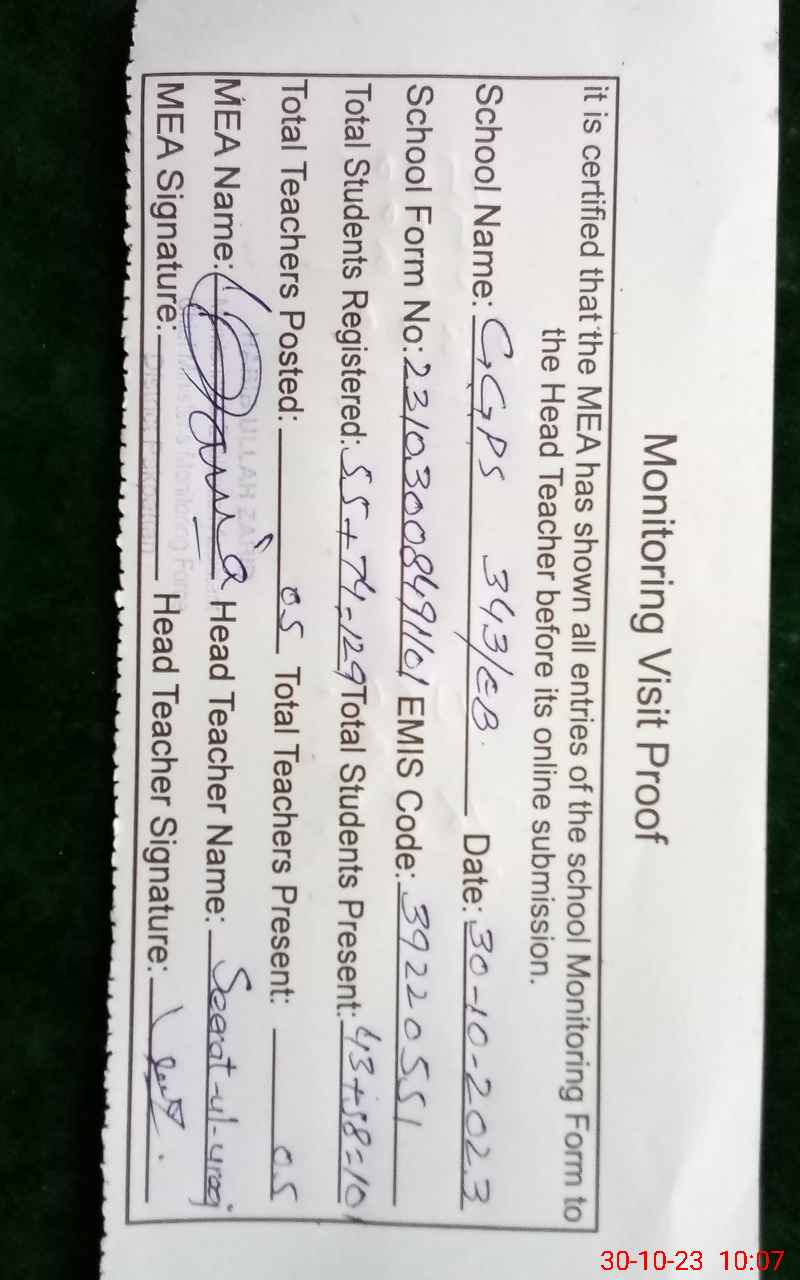 Monitoring Visit Proof
it is certified that the MEA has shown all entries of the school Monitoring Form to
the Head Teacher before its online submission.
School Name: GGPS 343/EB. Date: 30-10-2023
School Form No: 23103008491101 EMIS Code: 39220551
Total Students Registered: 55+74=129 Total Students Present: 43+58=101
Total Teachers Posted: 05 Total Teachers Present: 05
MEA Name: Head Teacher Name: Seerat-ul-
MEA Signature: Head Teacher Signature:
District Pakpattan
30-10-23 10:07